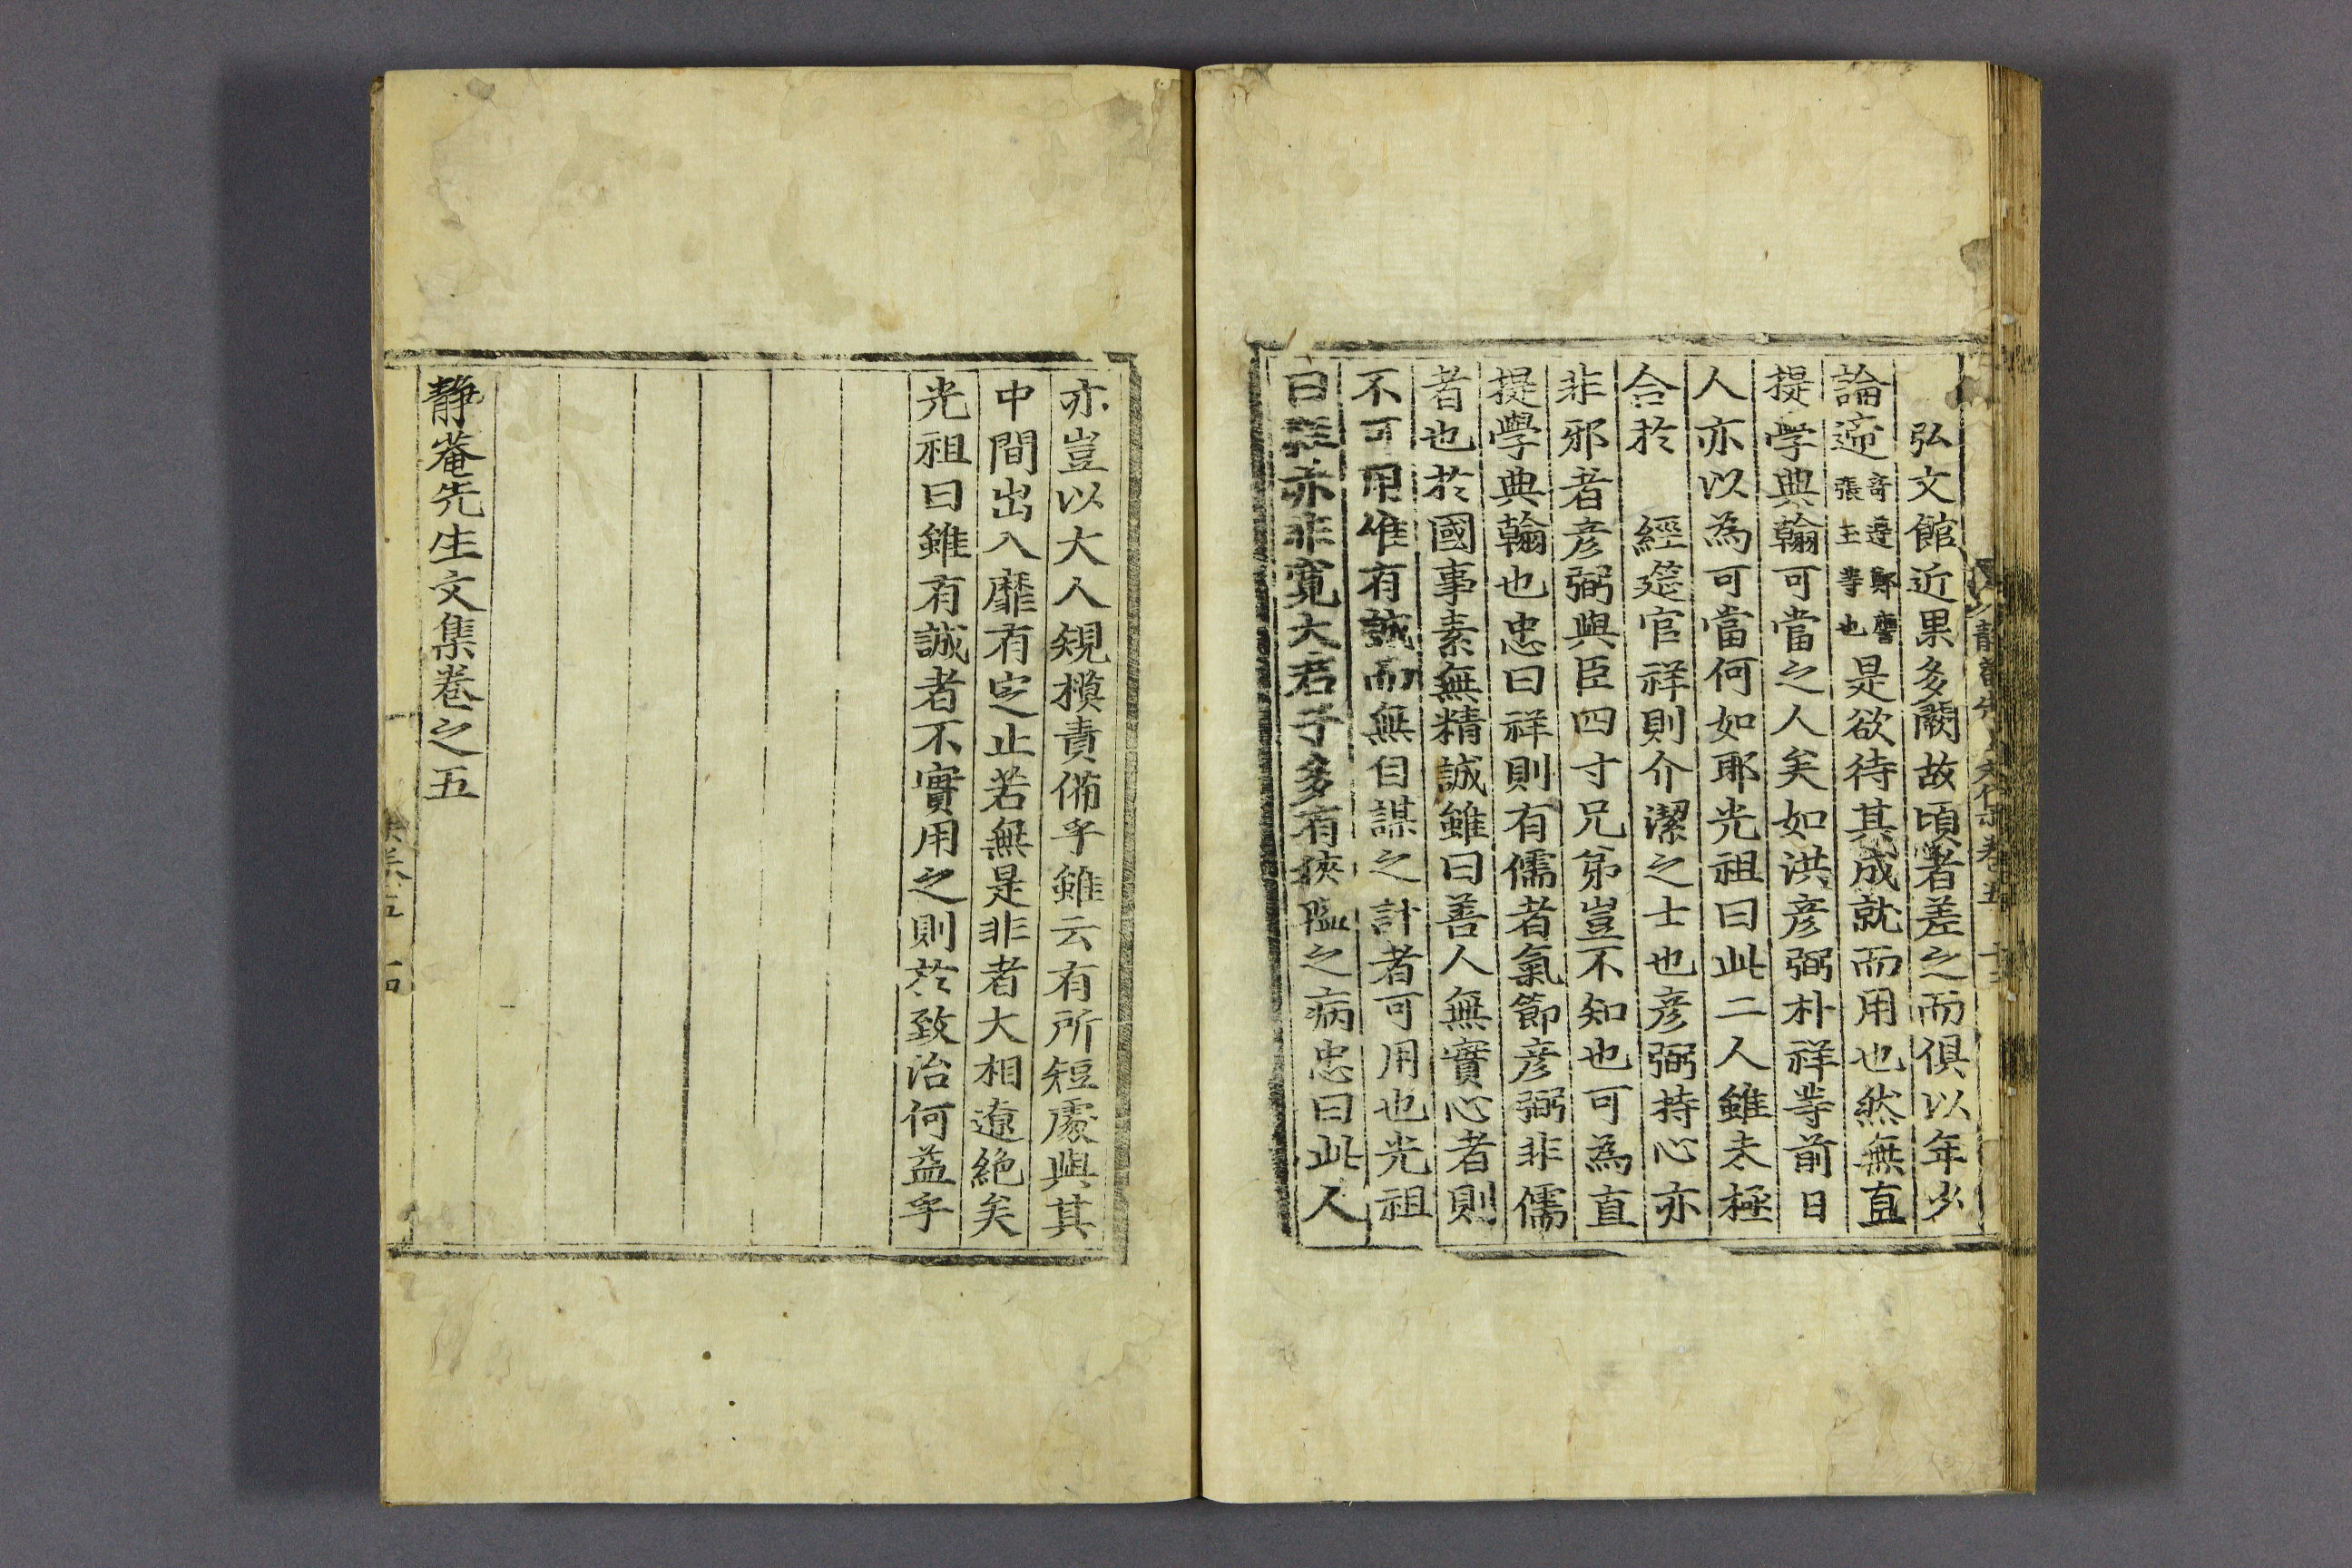 弘文館近果多闕故頃者差之而俱以年少
論遞奇遵鄭譍張玉等也是欲待其成就而用也然無直
提學典翰可當之人矣如洪彦弼朴祥等前日
人亦以為可當何如耶光祖曰此二人雖未極
合於 經筵官祥則介潔之士也彦弼持心亦
非邪者彦弼與臣四寸兄弟豈不知也可為直
提學典翰也忠曰祥則有儒者氣節彦弼非儒
者也於國事素無精誠雖曰善人無實心者則
不可用惟有誠而無自謀之計者可用也光祖
曰 亦非寬大君子多有狹隘之病忠曰此人
亦豈以大人規模責備乎雖云有所短處與其
中間出入靡有定止若無是非者大相遼絶矣
光祖曰雖有誠者不實用之則於致治何益乎
靜菴先生文集卷之五